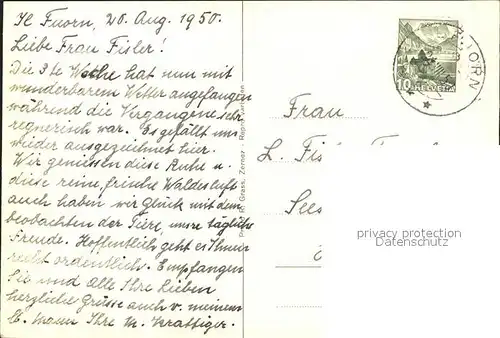 Il Fuorn, 20. Aug. 1950.
Liebe Frau Fisler!
Die 3te Woche hat nun mit
wunderbarem Wetter angefangen
während die Vergangene sehr
regnerisch war. Es gefällt uns
wieder ausgezeichnet hier.
Wir geniessen diese Ruhe u.
diese reine, frische Waldesluft
auch haben wir Glück mit dem
beobachten der Tiere, unsre tägliche
Freude. Hoffentlich geht es Ihnen
recht ordentlich. Empfangen
Sie und alle Ihre Lieben
herzliche Grüsse auch v. meinem
lb. Mann Ihre M. Krattiger.
R. Grass, Zernez
Frau
L. Fis
Sees
10 HELVETIA
privacy protection
Datenschutz